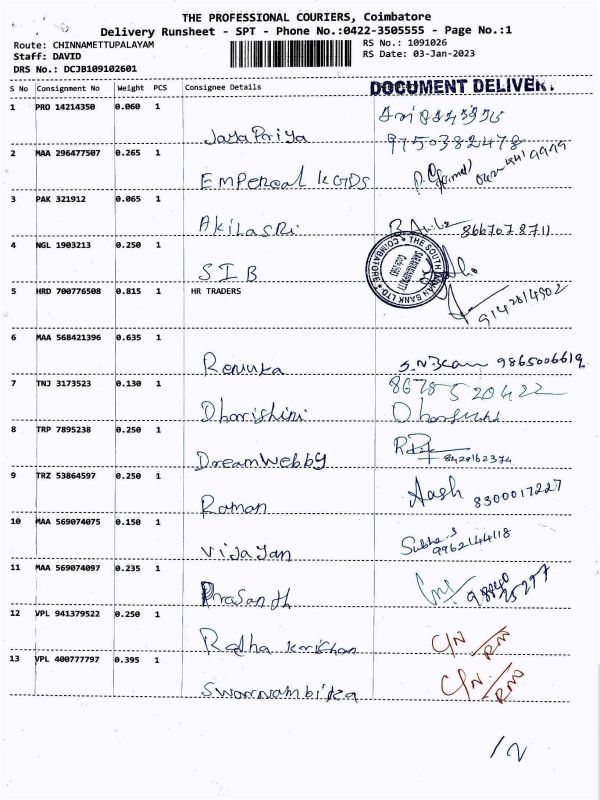 THE PROFESSIONAL COURIERS, Coimbatore
Delivery Runsheet - SPT - Phone No.:0422-3505555 - Page No.:1
Route: CHINNAMETTUPALAYAM
RS No.: 1091026
Staff: DAVID
RS Date: 03-Jan-2023
DRS No.: DCJB109102601
S No Consignment No Weight PCS Consignee Details
DOCUMENT DELIVER
1 PRO 14214350 0.060 1
JayaPriya 9750382478
2 MAA 296477507 0.265 1
EMPereal KGDS
3 PAK 321912 0.065 1
AkilaSRi 8667078711
4 NGL 1903213 0.250 1
SIB
THE SOUTH INDIAN BANK LTD. COIMBATORE
5 HRD 700776508 0.815 1 HR TRADERS
9142814902
6 MAA 568421396 0.635 1
Renuka 9865006619
7 TNJ 3173523 0.130 1
8678520422
Dharishini
8 TRP 7895238 0.250 1
DreamWebby 8420162374
9 TRZ 53864597 0.250 1
Raman Aash 8300017227
10 MAA 569074075 0.150 1
Vijayan Subha.S
9962144118
11 MAA 569074097 0.235 1
Prasanth
12 VPL 941379522 0.250 1
Radha Krishan C/N
13 VPL 400777797 0.395 1
Swarnambika C/N
12